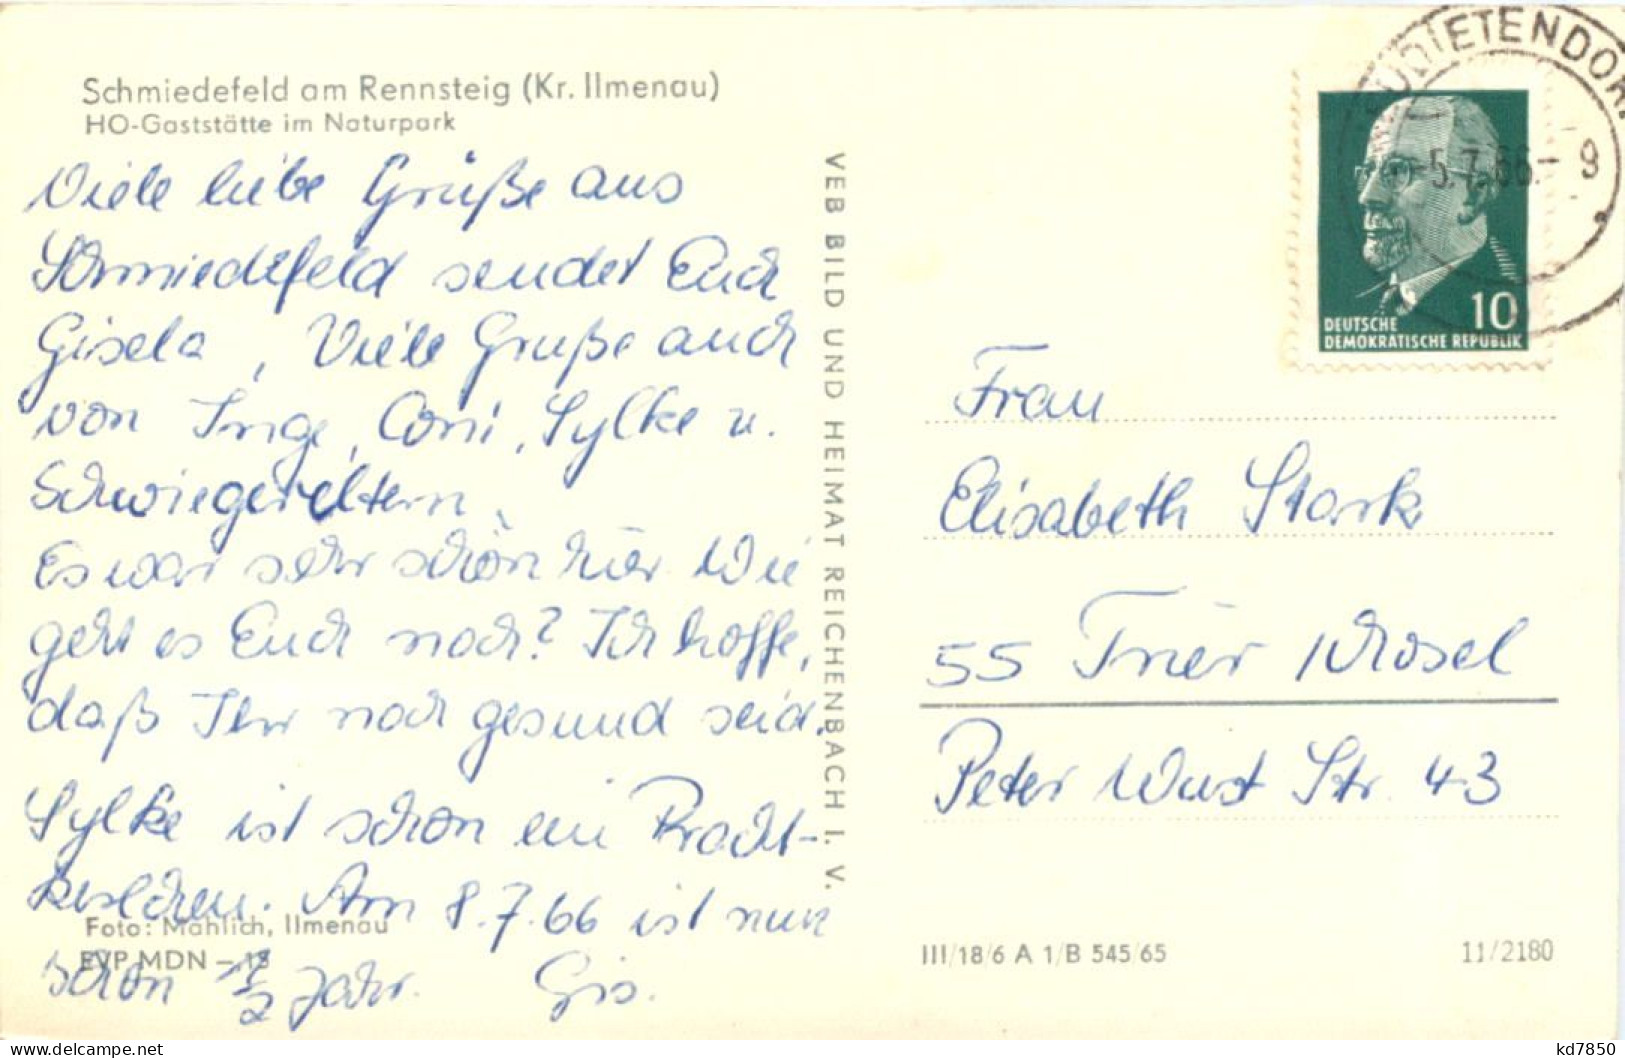 Schmiedefeld am Rennsteig (Kr. Ilmenau)
HO-Gaststätte im Naturpark
Viele liebe Grüße aus
Schmiedefeld sendet Euch
Gisela, Viele Gruße auch
von Inge, Coni, Sylke u.
Schwiegereltern.
Es war sehr schön hier. Wie
geht es Euch noch? Ich hoffe,
daß Ihr noch gesund seid.
Sylke ist schon ein Pracht-
kerlchen. Am 8.7.66 ist nun
schon 1/2 Jahr. Gis.
Foto: Mahlich, Ilmenau
EVP MDN –
VEB BILD UND HEIMAT REICHENBACH I. V.
UDIETENDORF
5.7.66.– 9
10
DEUTSCHE
DEMOKRATISCHE REPUBLIK
Frau
Elisabeth Stark
55 Trier / Mosel
Peter Wust Str. 43
III/18/6 A 1/B 545/65
11/2180
kd7850